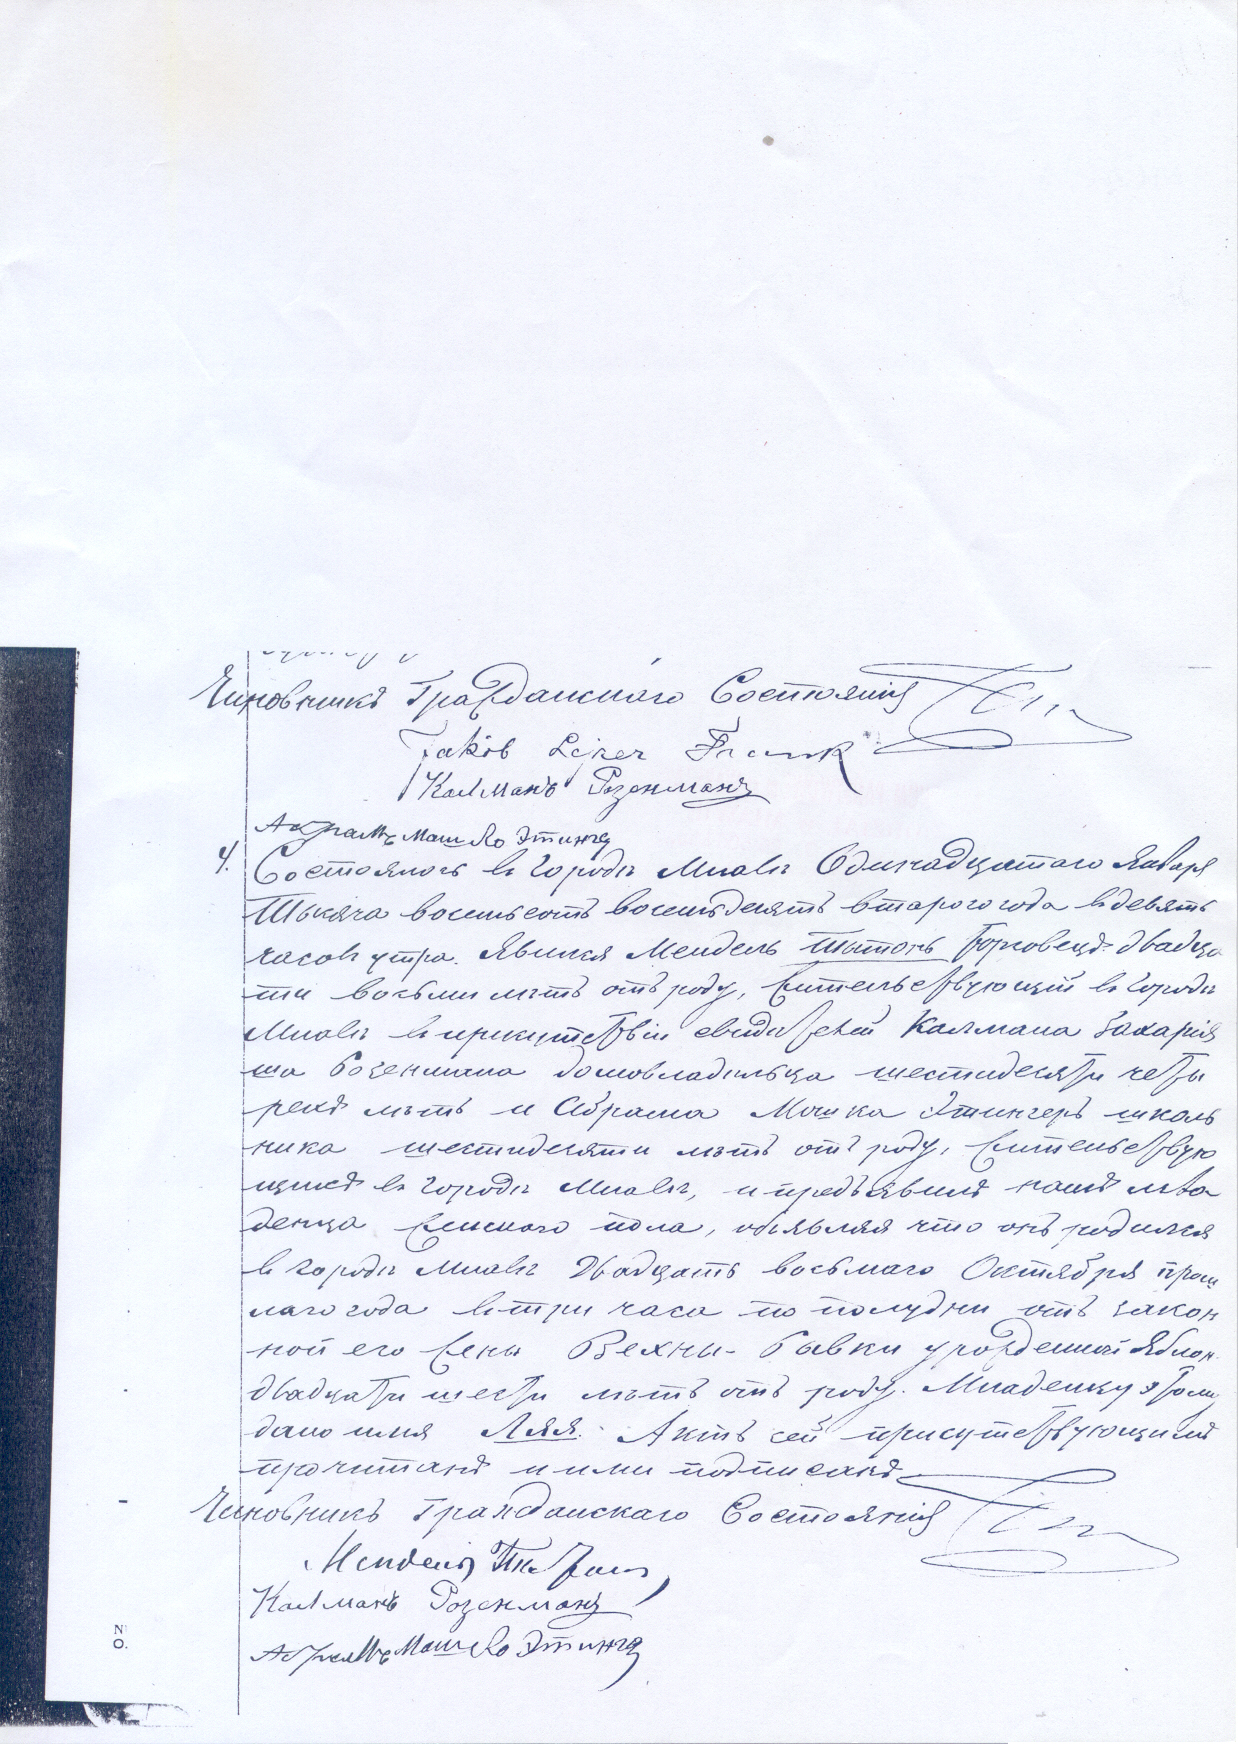 Чиновникъ Гражданскаго Состоянія
Jakób Lejzer Frank
Калманъ Розенманъ
Абрамъ Машко Этинге
4. Состоялось въ городѣ Млавѣ Одинадцатаго Января
Тысяча восемьсотъ восемьдесятъ втораго года въ девять
часовъ утра. Явился Мендель Тытонь торговецъ двадца
ти восьми лѣтъ отъ роду, жительствующій въ городѣ
Млавѣ въ присутствіи свидѣтелей Калмана Захарія
ша Розенмана домовладѣльца шестидесяти четы
рехъ лѣтъ и Абрама Мошка Этингеръ школь
ника шестидесяти лѣтъ отъ роду, жительствую
щихъ въ городѣ Млавѣ, и предъявилъ намъ мла
денца женскаго пола, объявляя что онъ родился
въ городѣ Млавѣ двадцать восьмаго Октября прош
лаго года въ три часа по полудни отъ закон
ной его жены Рывки урожденной Яблон
двадцати шести лѣтъ отъ роду. Младенцу этому
дано имя Лая. Актъ сей присутствующимъ
прочитанъ и ими подписанъ
Чиновникъ Гражданскаго Состоянія
Мендель
Калманъ Розенманъ
Абрамъ Машко Этинге